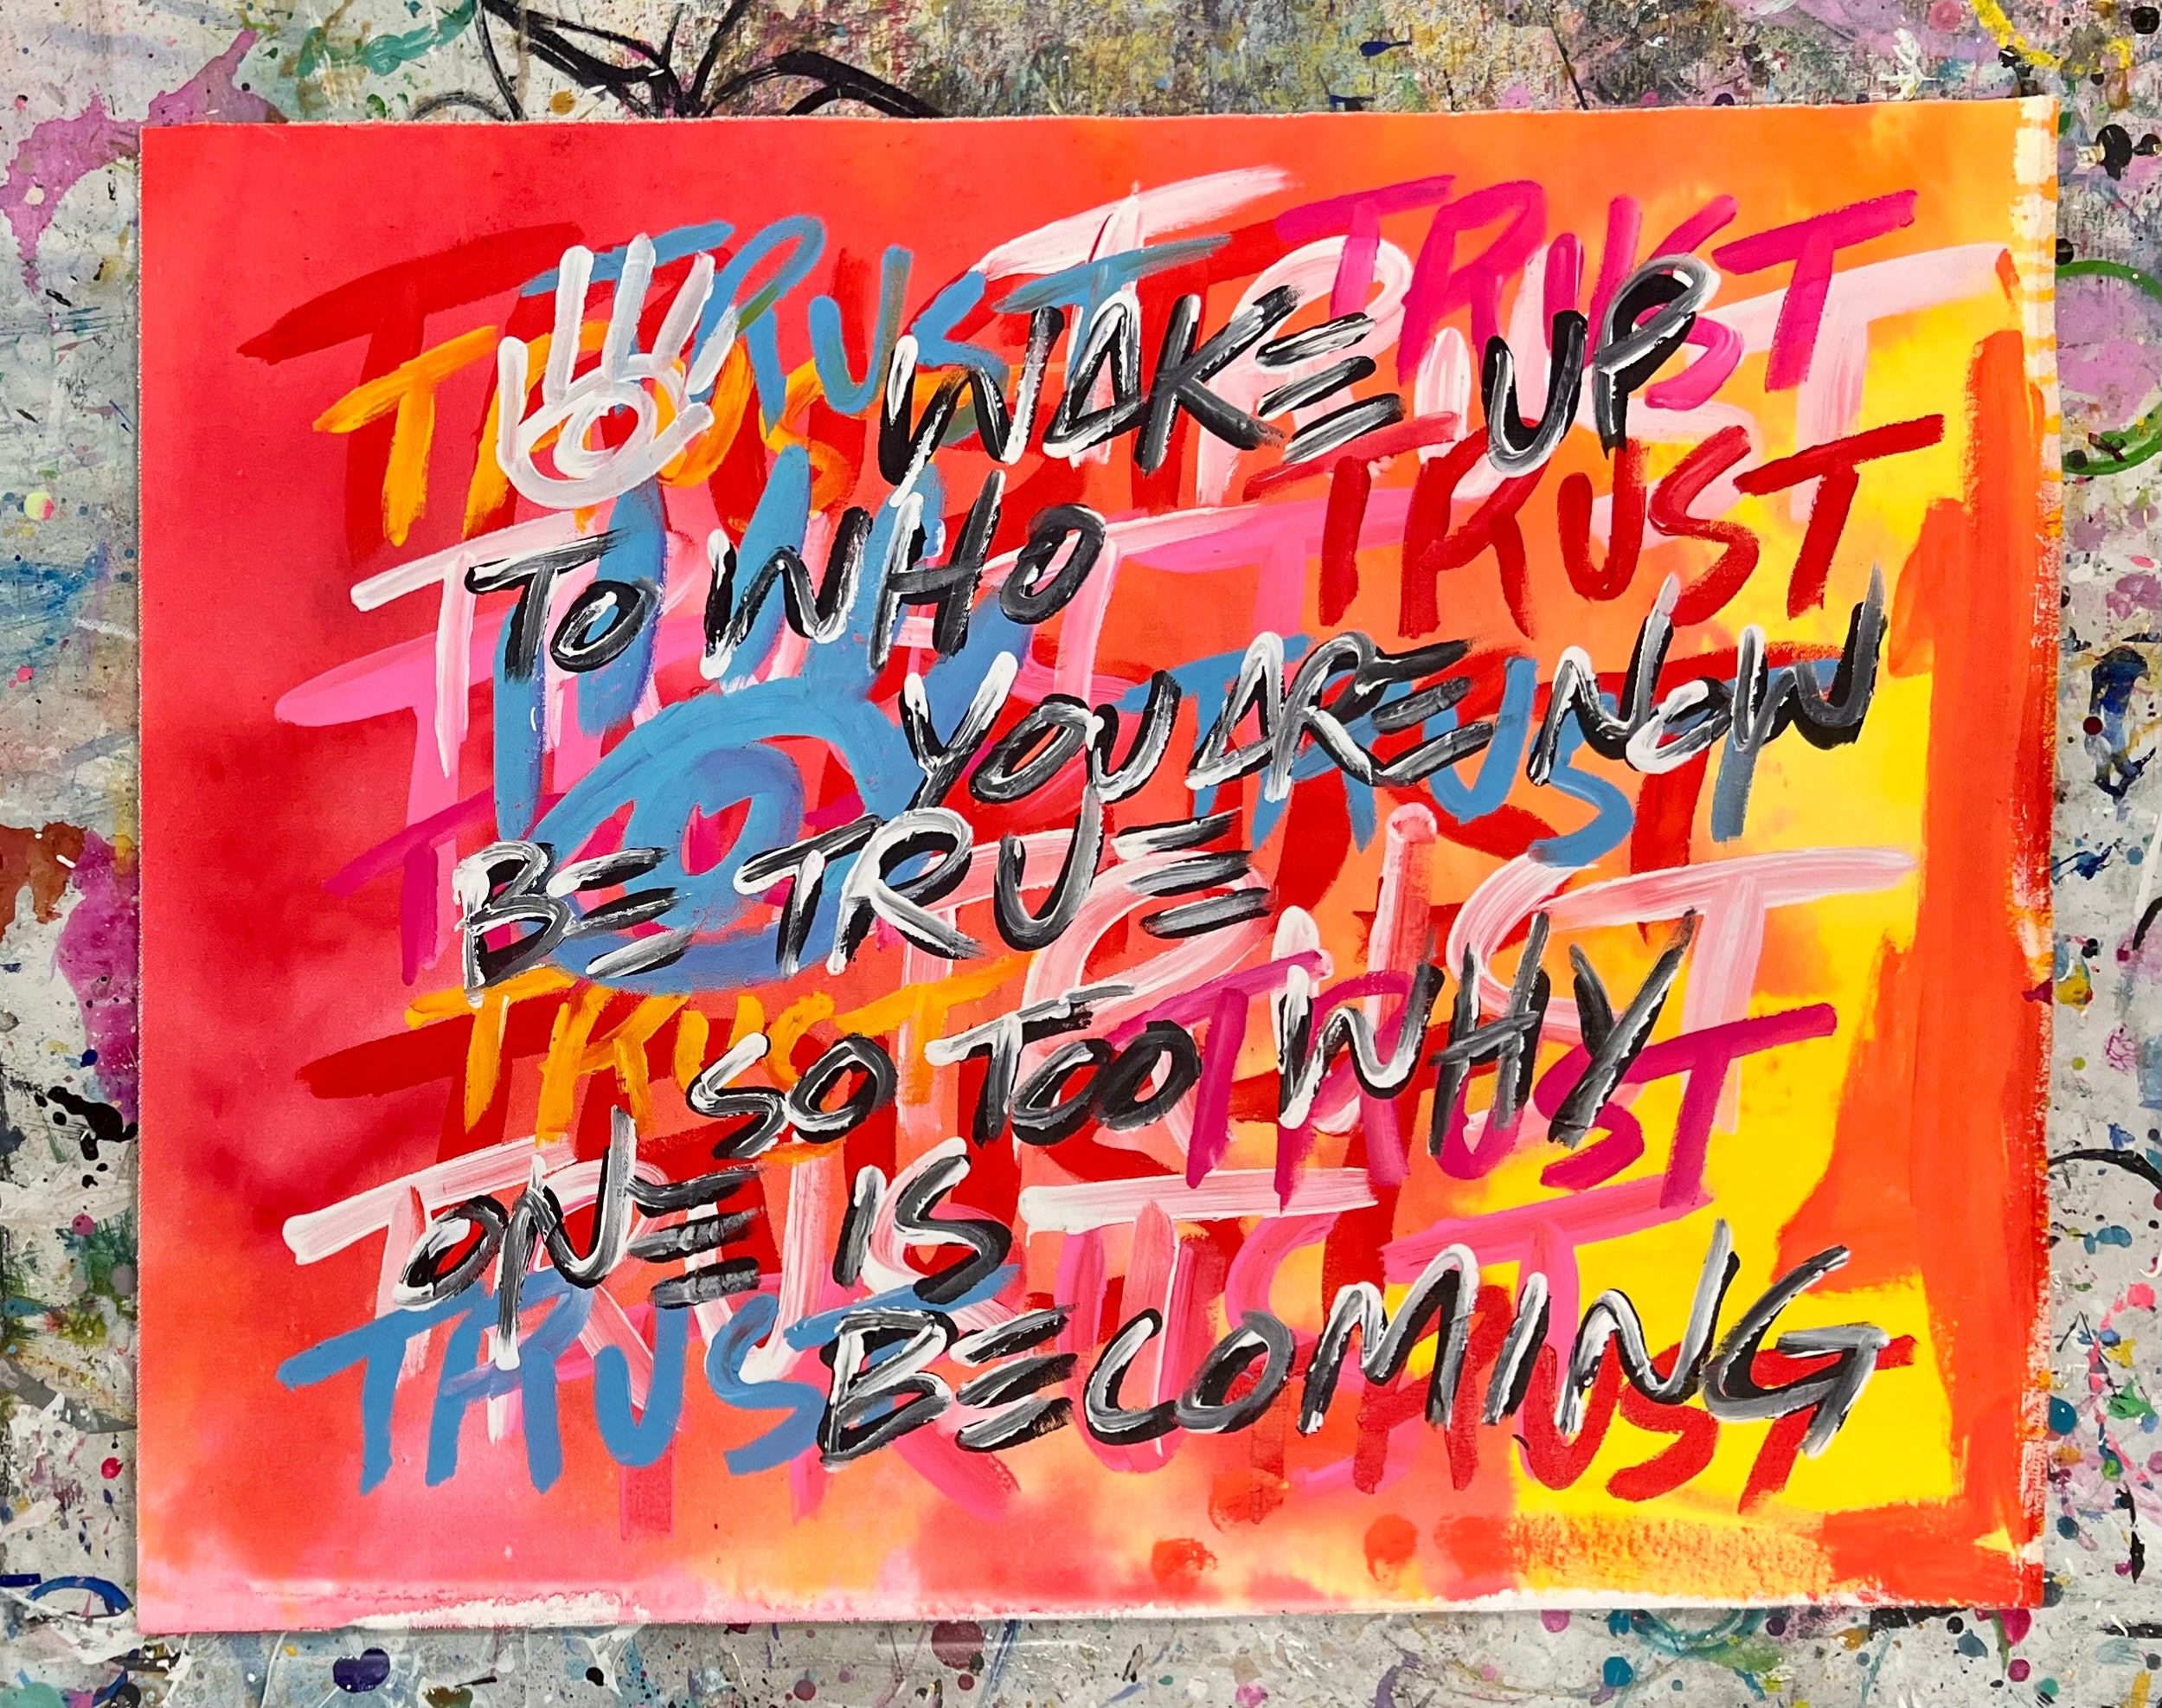 TRUST TRUST
WAKE UP
TRUST TRUST
TO WHO
YOU ARE NOW
TRUST
BE TRUE
TRUST TRUST
SO TOO WHY
TRUST TRUST
ONE IS
TRUST
BECOMING
TRUST TRUST